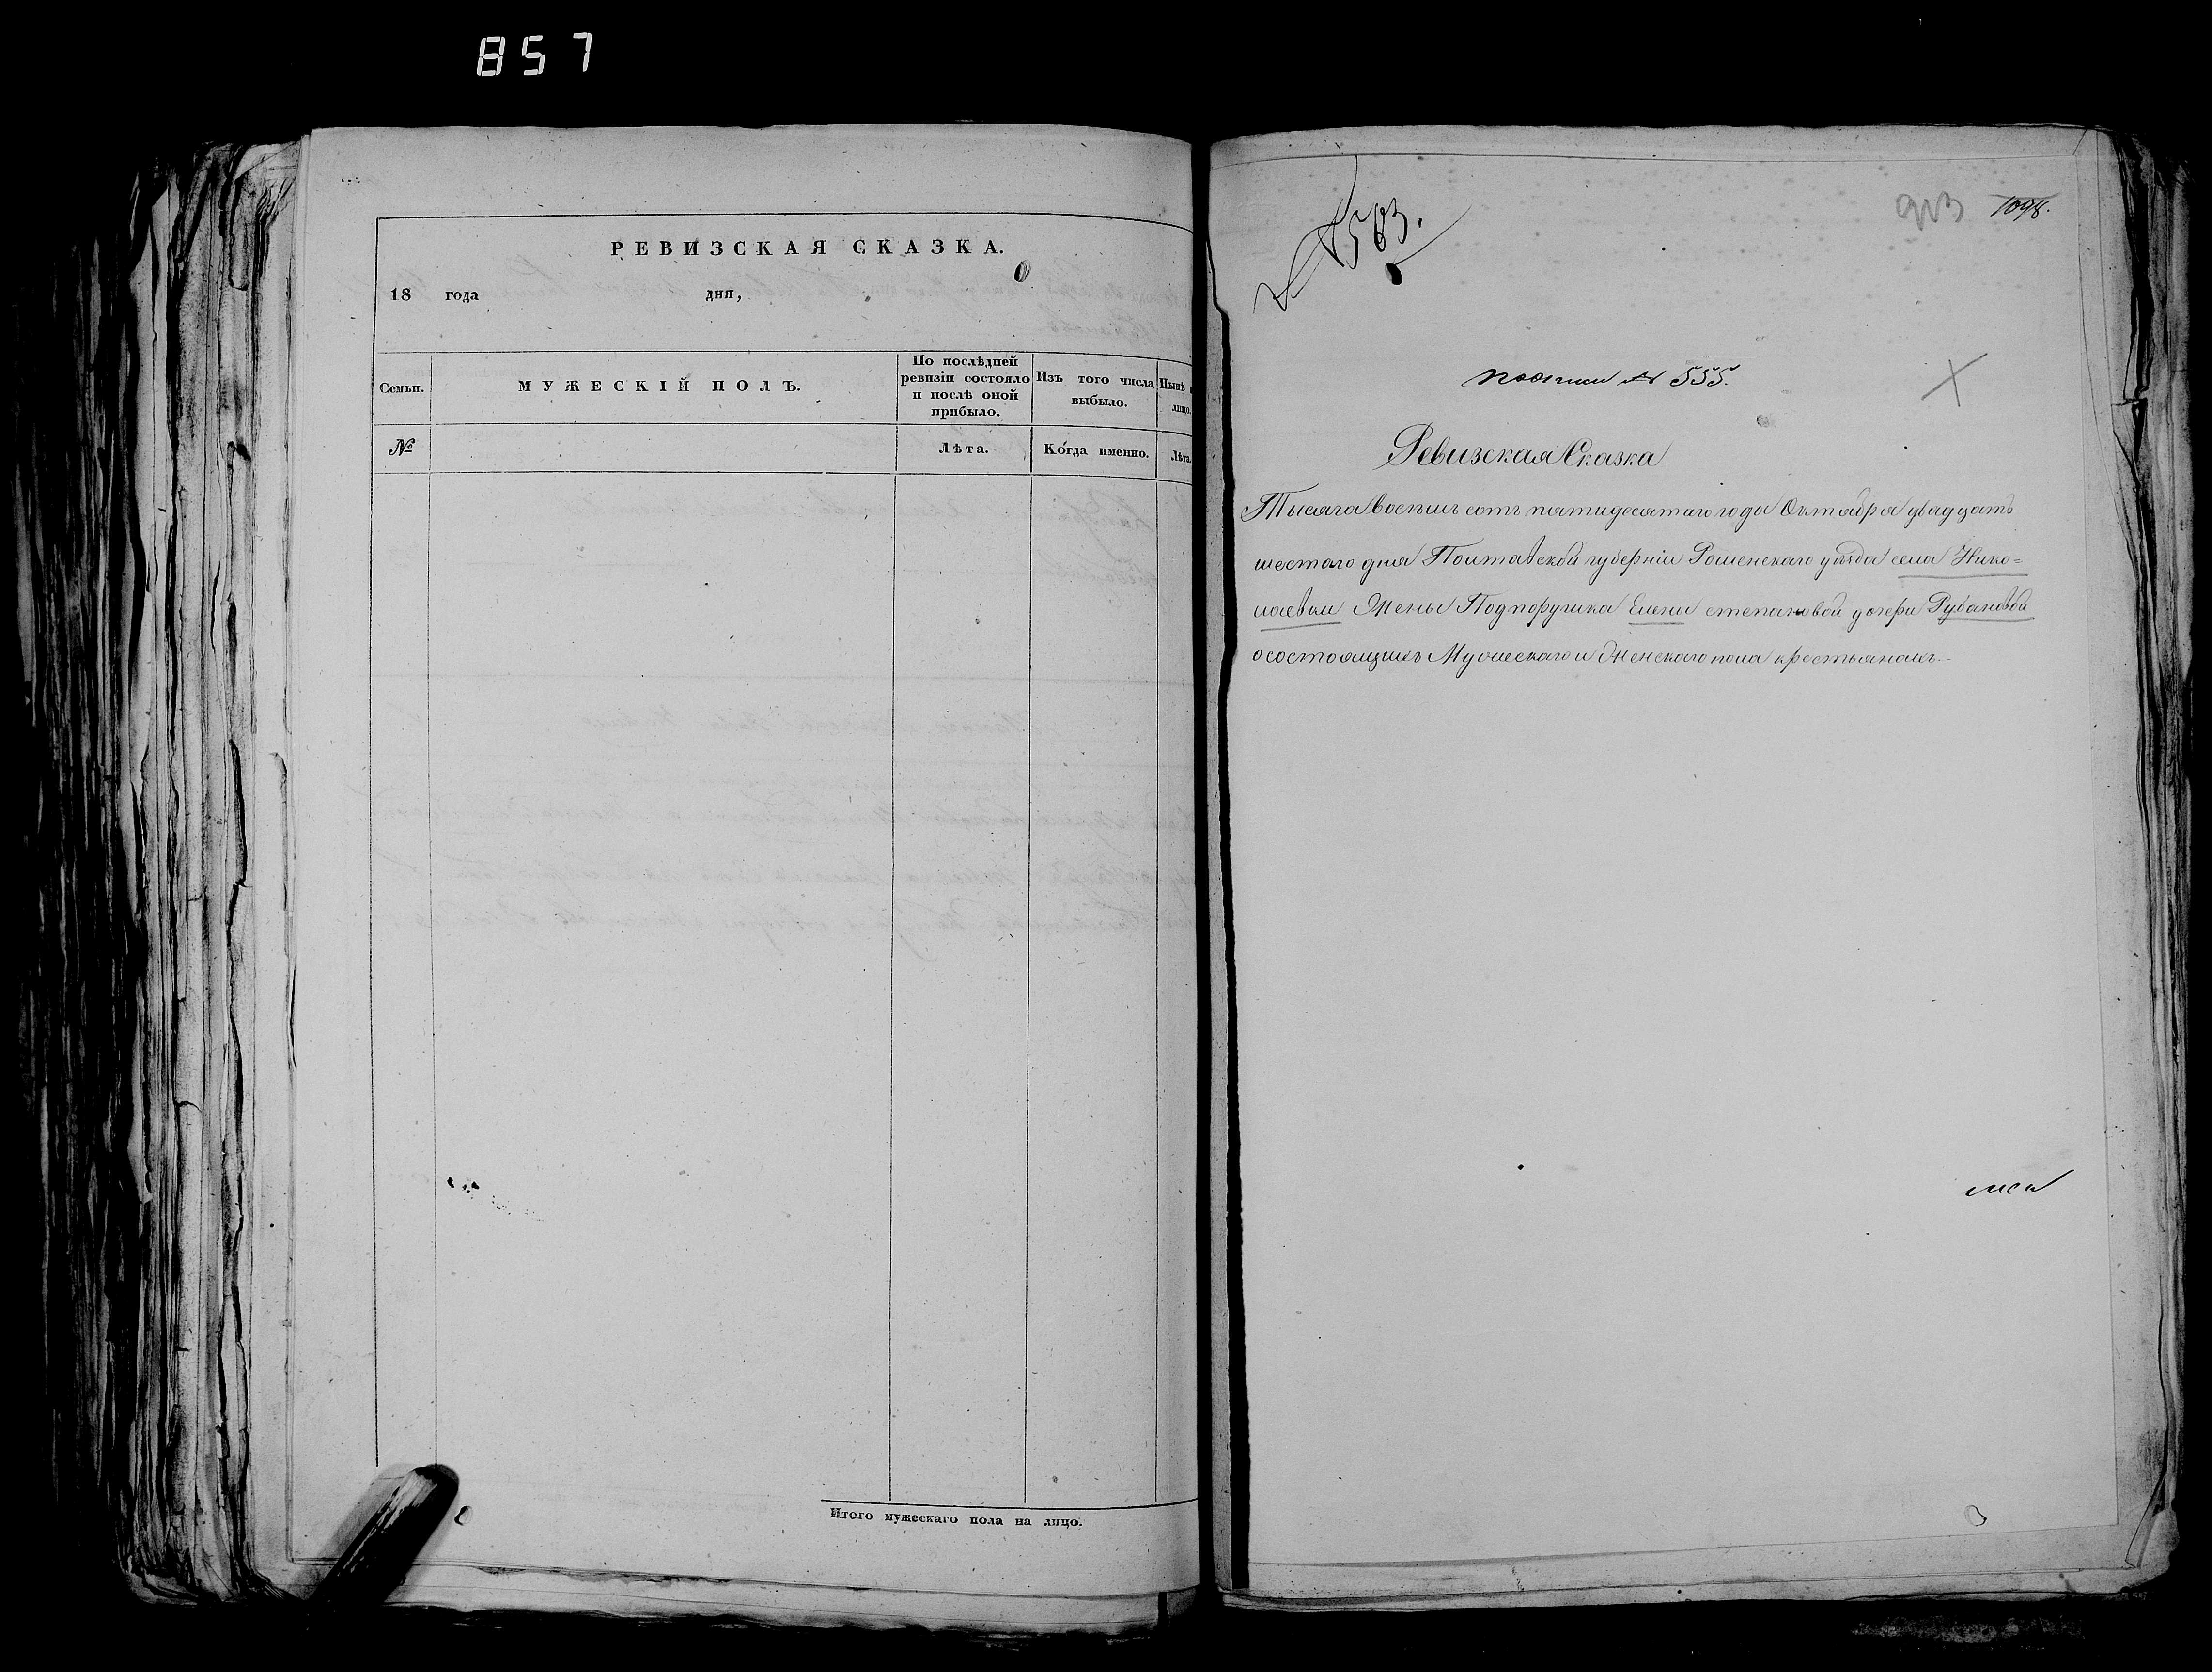 857
РЕВИЗСКАЯ СКАЗКА.
18 года дня,
Семьи.
МУЖЕСКІЙ ПОЛЪ.
По послѣдней
ревизіи состояло
и послѣ оной
прибыло.
Изъ того числа
выбыло.
Нынѣ
лицо.
№
Лѣта.
Когда именно.
Лѣта
Итого мужескаго пола на лицо.
№ 563.
913 1098.
по описи № 555.
Ревизская Сказка
Тысяча восемь сотъ пятидесятаго года Октября двадцать
шестаго дня Полтавской губерніи Роменскаго уѣзда села Нико=
лаевки Жены Подпоручика Елены степановой дочери Рубановой
о состоящихъ Мужескаго и Женскаго пола крестьянахъ.